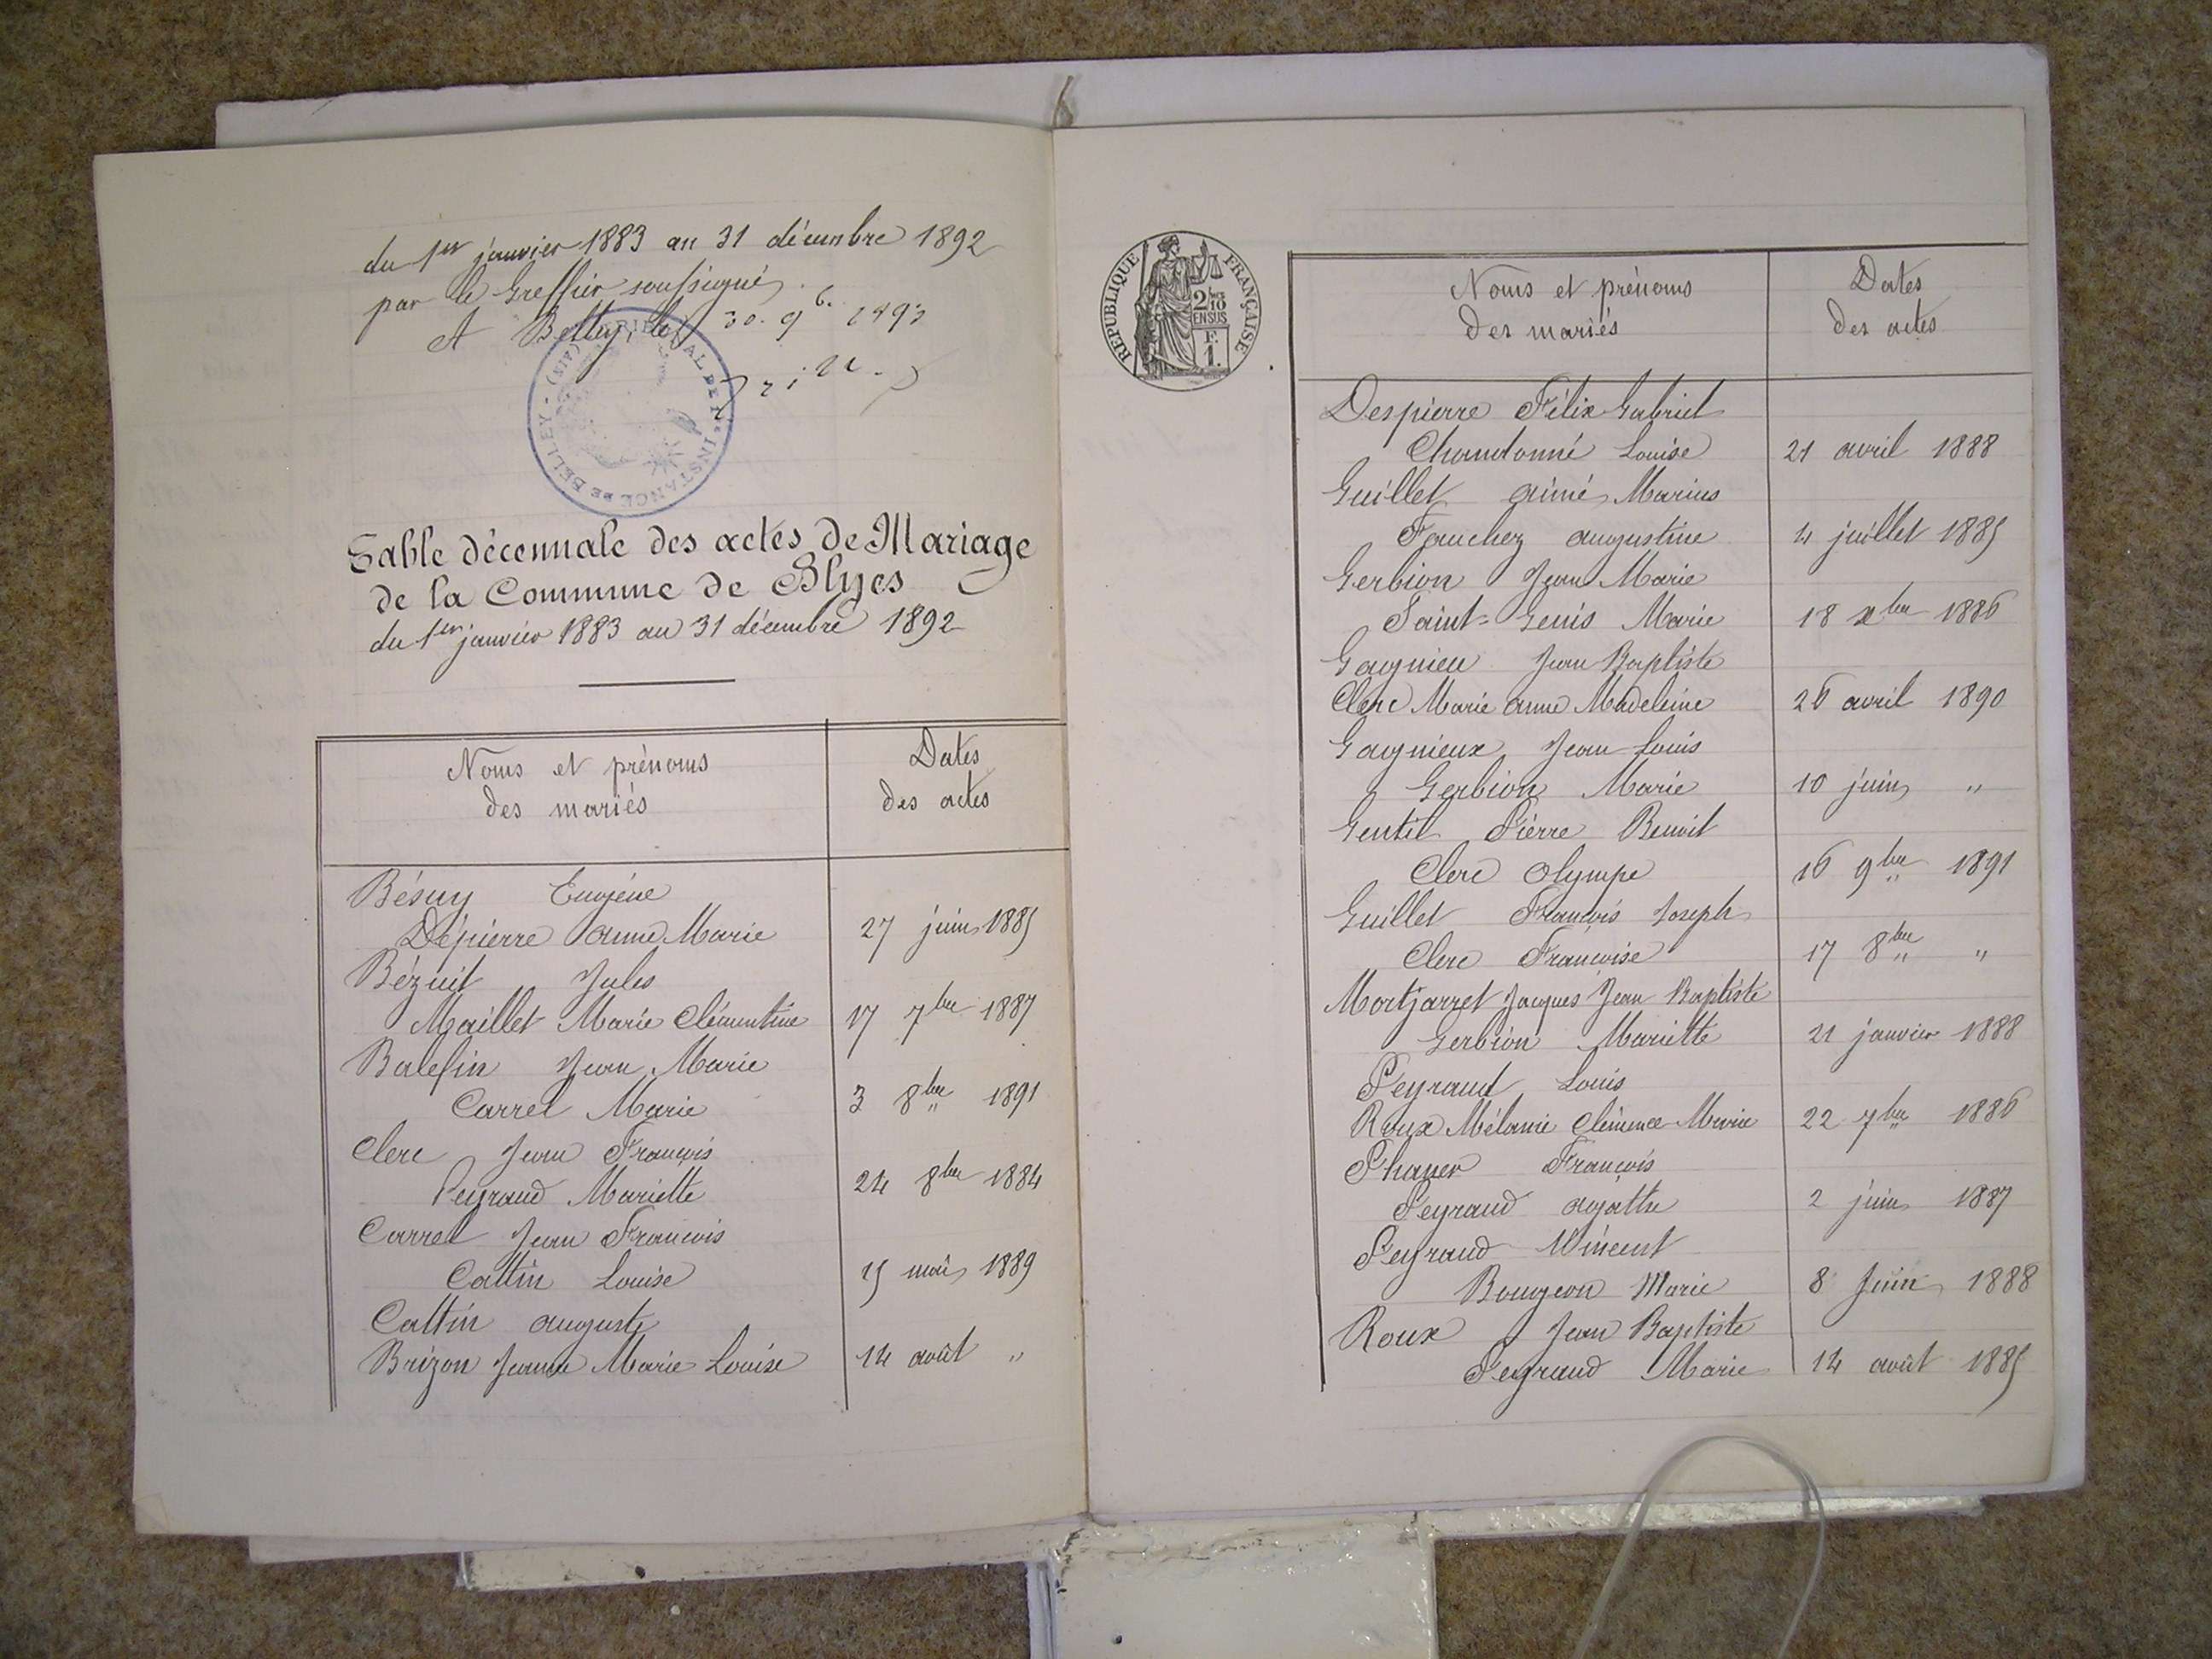 du 1er janvier 1883 au 31 décembre 1892
par le Greffier soussigné.
A Belley, le 30. 9b. 1893
GREFFE TRIBUNAL DE 1re INSTANCE DE BELLEY - (AIN)
Table décennale des actes de Mariage
de la Commune de Blyes
du 1er janvier 1883 au 31 décembre 1892
Noms et prénoms des mariés
Dates des actes
Bésuy Eugéne
Dépierre Anne Marie 27 juin 1885
Bézuit Jules
Maillet Marie Clémentine 17 7bre 1887
Balefin Jean Marie
Carrel Marie 3 8bre 1891
Clerc Jean François
Peyraud Mariette 24 8bre 1884
Carrel Jean François
Cattin Louise 15 1889
Cattin auguste
Brizon Jeanne Marie Louise 14 août "
REPUBLIQUE FRANÇAISE
2/10 EN SUS
F. 1.
Noms et prénoms des mariés
Dates des actes
Despierre Félix Gabriel
Chandonné Louise 21 avril 1888
Guillet aimé Marius
Fauchez augustine 4 juillet 1885
Gerbion Jean Marie
Saint-Genis Marie 18 xbre 1886
Gagnieu Jean Baptiste
Clerc Marie anne Madeleine 26 avril 1890
Gagnieux Jean Louis
Gerbion Marie 10 juin "
Gentil Pièrre Benoit
Clerc Olympe 16 9bre 1891
Guillet François Joseph
Clerc Françoise 17 8bre "
Mortjarret Jacques Jean Baptiste
Gerbion Mariette 21 janvier 1888
Peyraud Louis
Roux Mélanie Clémence Marie 22 7bre 1886
Phaner François
Peyraud agathe 2 juin 1887
Peyraud Vincent
Bougeon Marie 8 Juin 1888
Roux Jean Baptiste
Peyraud Marie 14 août 1885